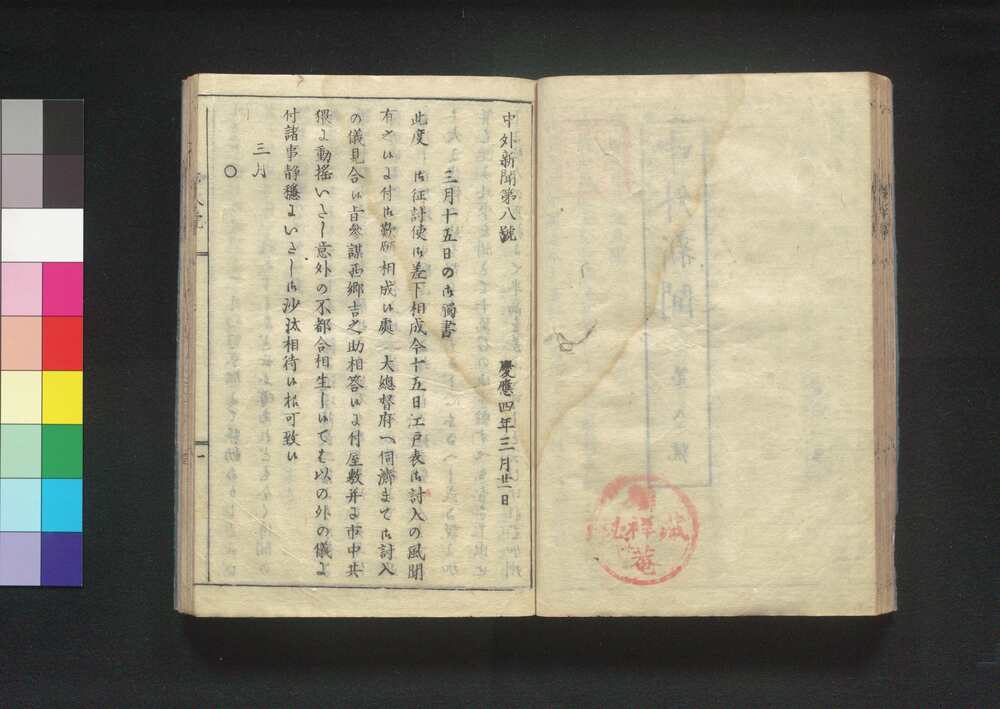 中外新聞第八號
慶應四年三月廿一日
三月十五日の御觸書
此度 御征討使御差下相成今十五日江戸表御討入の風聞
有之候よ付御歎願相成候處 大總督府へ伺濟まで御討入
の儀見合候旨參謀西郷吉之助相答候よ付屋敷并よ市中共
猥よ動搖いたし意外の不都合相生し候ても以の外の儀よ
付諸事静穩よいたし御沙汰相待候樣可致候
三月
○
一